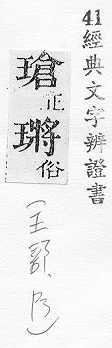 41經典文字辨證書
瑲正
𤩝俗
(玉部,